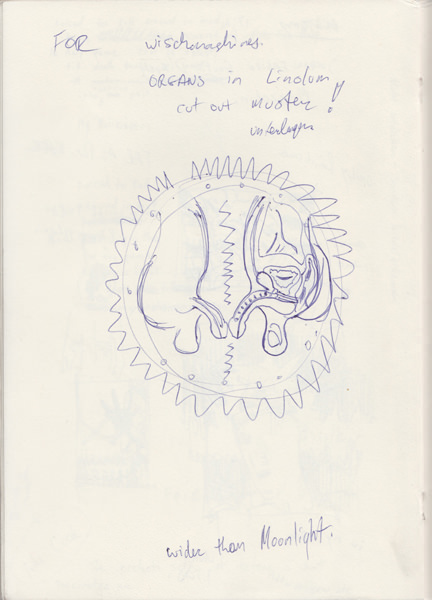 FOR wischmaschines.
ORGANS in Linolum
cut out Muster!
unterlagen
wider than Moonlight.